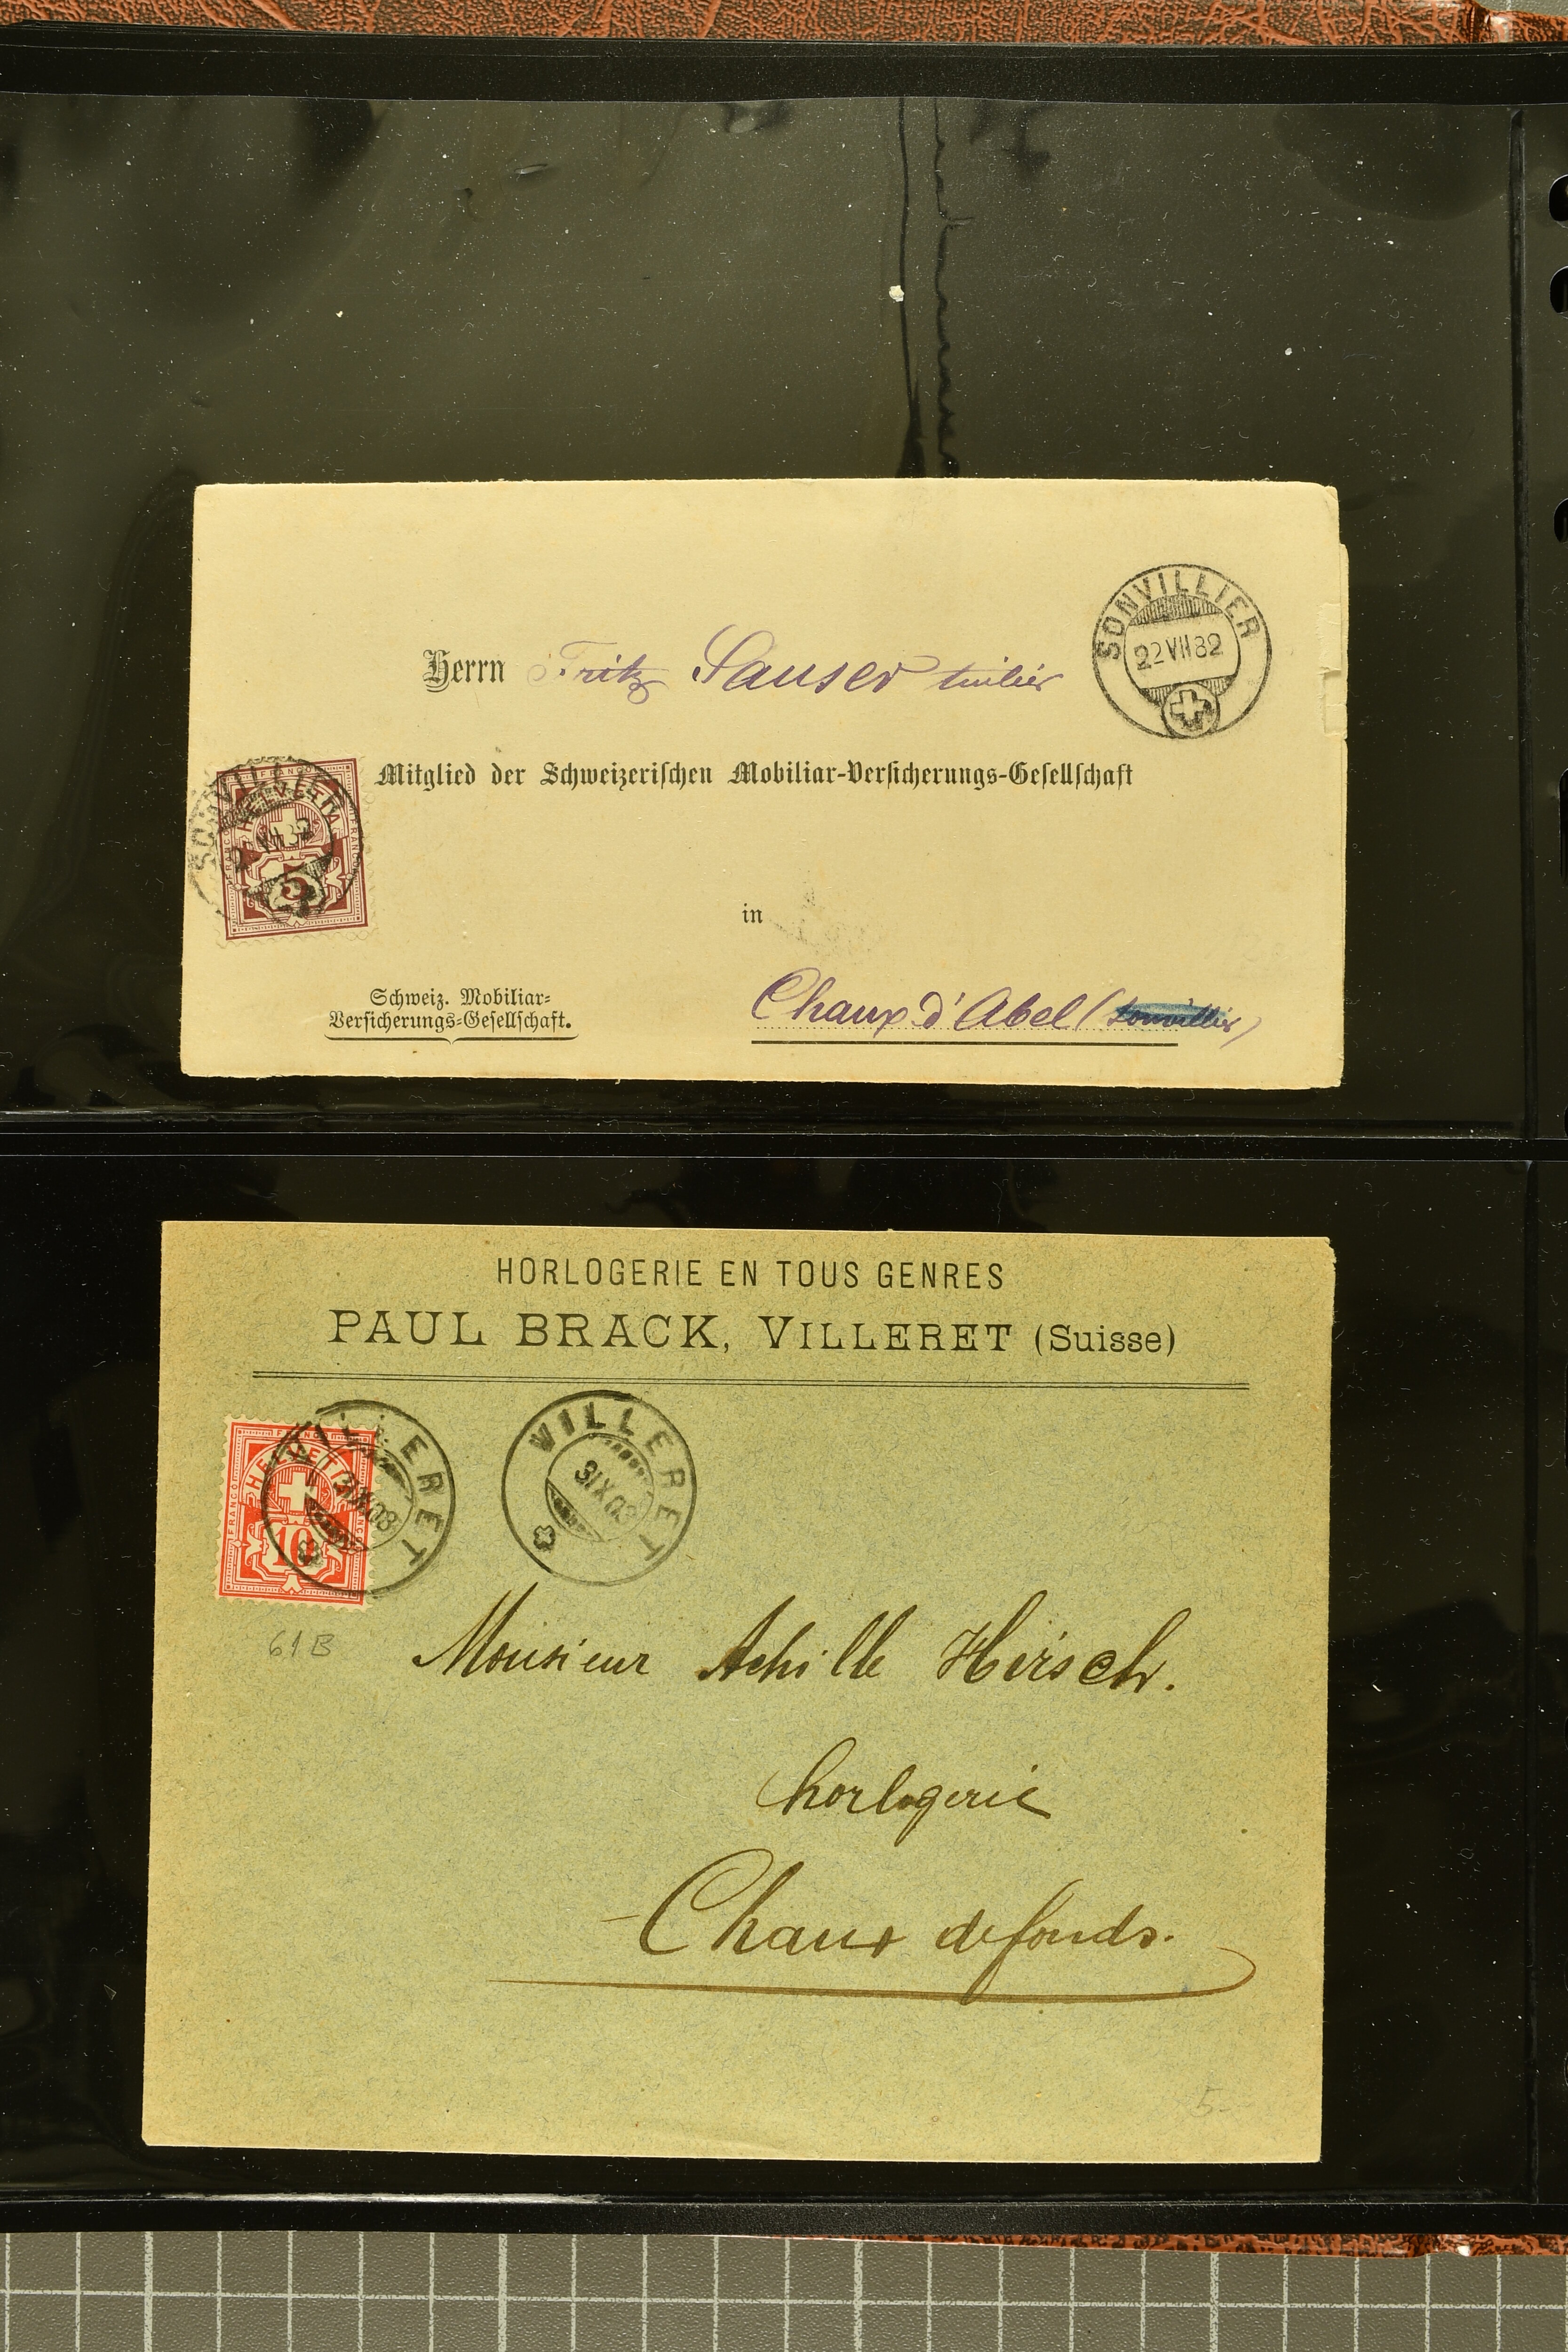 SONVILLIER
22 VII 82
Herrn Fritz Sauser tuilier
FRANCO
HELVETIA
5
SONVILLIER
Mitglied der Schweizerischen Mobiliar-Versicherungs-Gesellschaft
in
Chaux d'Abel (Sonvillier)
Schweiz. Mobiliar-
Versicherungs-Gesellschaft.
HORLOGERIE EN TOUS GENRES
PAUL BRACK, VILLERET (Suisse)
FRANCO
HELVETIA
10
VILLERET
VILLERET
61B
Monsieur Achille Hirsch.
horlogerie
Chaux defonds.
5-